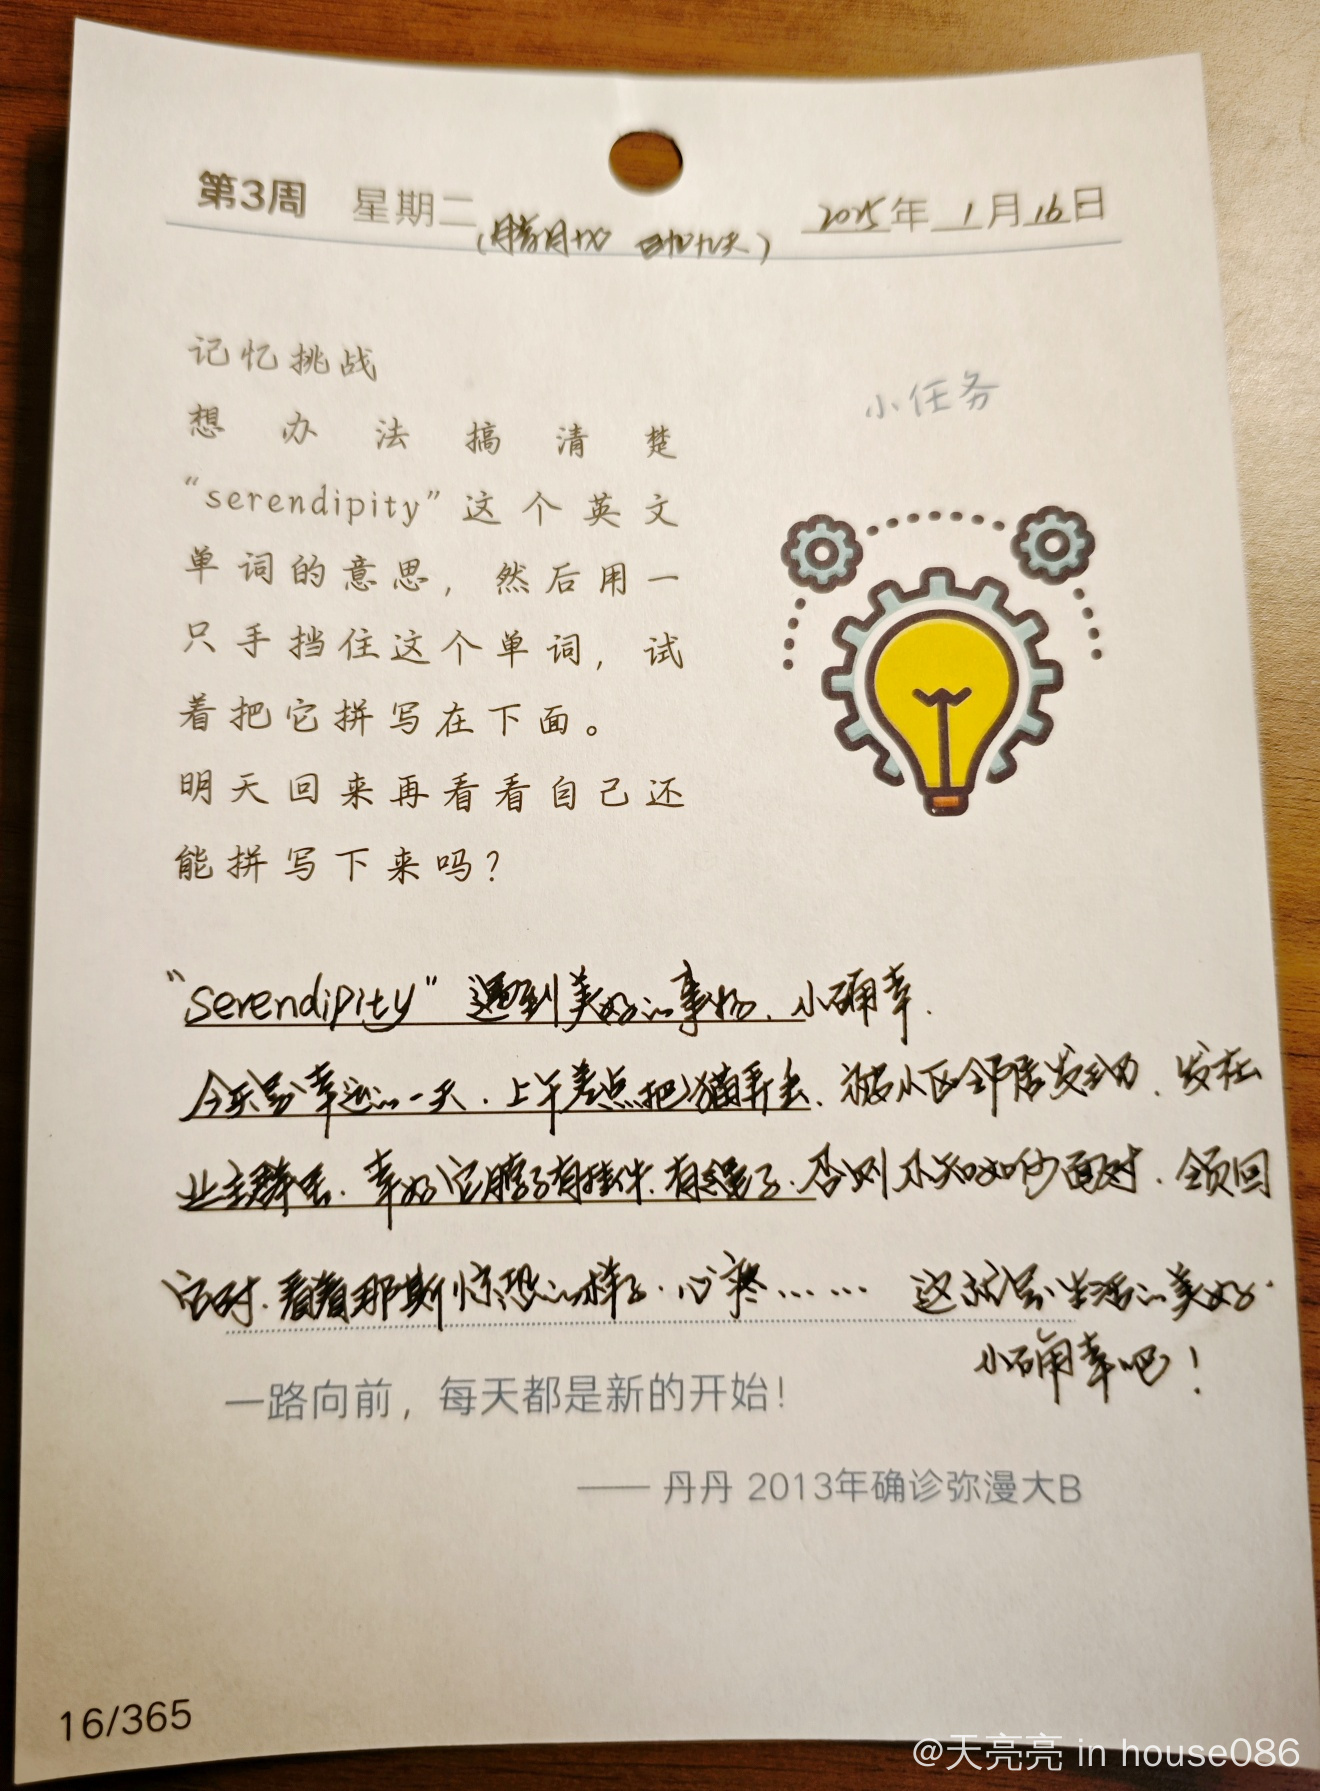 第3周 星期二 2025年1月16日
记忆挑战
小任务
想办法搞清楚
“serendipity”这个英文
单词的意思，然后用一
只手挡住这个单词，试
着把它拼写在下面。
明天回来再看看自己还
能拼写下来吗？
“serendipity”遇到美好的事物.小确幸.
今天是幸运的一天.上午差点把猫弄丢.被小区邻居发现.发在
业主群里.幸好它脖子有挂件.有绳子.否则不知如何面对.领回
它时.看着那斯惊恐的样子.心疼…… 这就是生活的美好.
小确幸吧！
一路向前，每天都是新的开始！
—— 丹丹 2013年确诊弥漫大B
16/365
@天亮亮 in house086